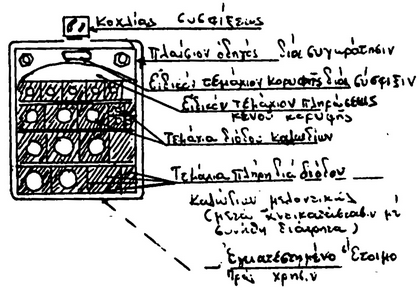 Κοχλίας συσφίξεως
Πλαίσιον οδηγός διά συγκράτησιν
Ειδικόν τεμάχιον κορυφής διά σύσφιξιν
Ειδικόν τεμάχιον πληρώσεως
κενού κορυφής
Τεμάχια διόδου καλωδίων
Τεμάχια πλήρη διά δίοδον
καλωδίων μελοντικώς
(μετά
συνήθη διάτρητα)
Εγκατεστημένο έτοιμο
πρός χρήσιν